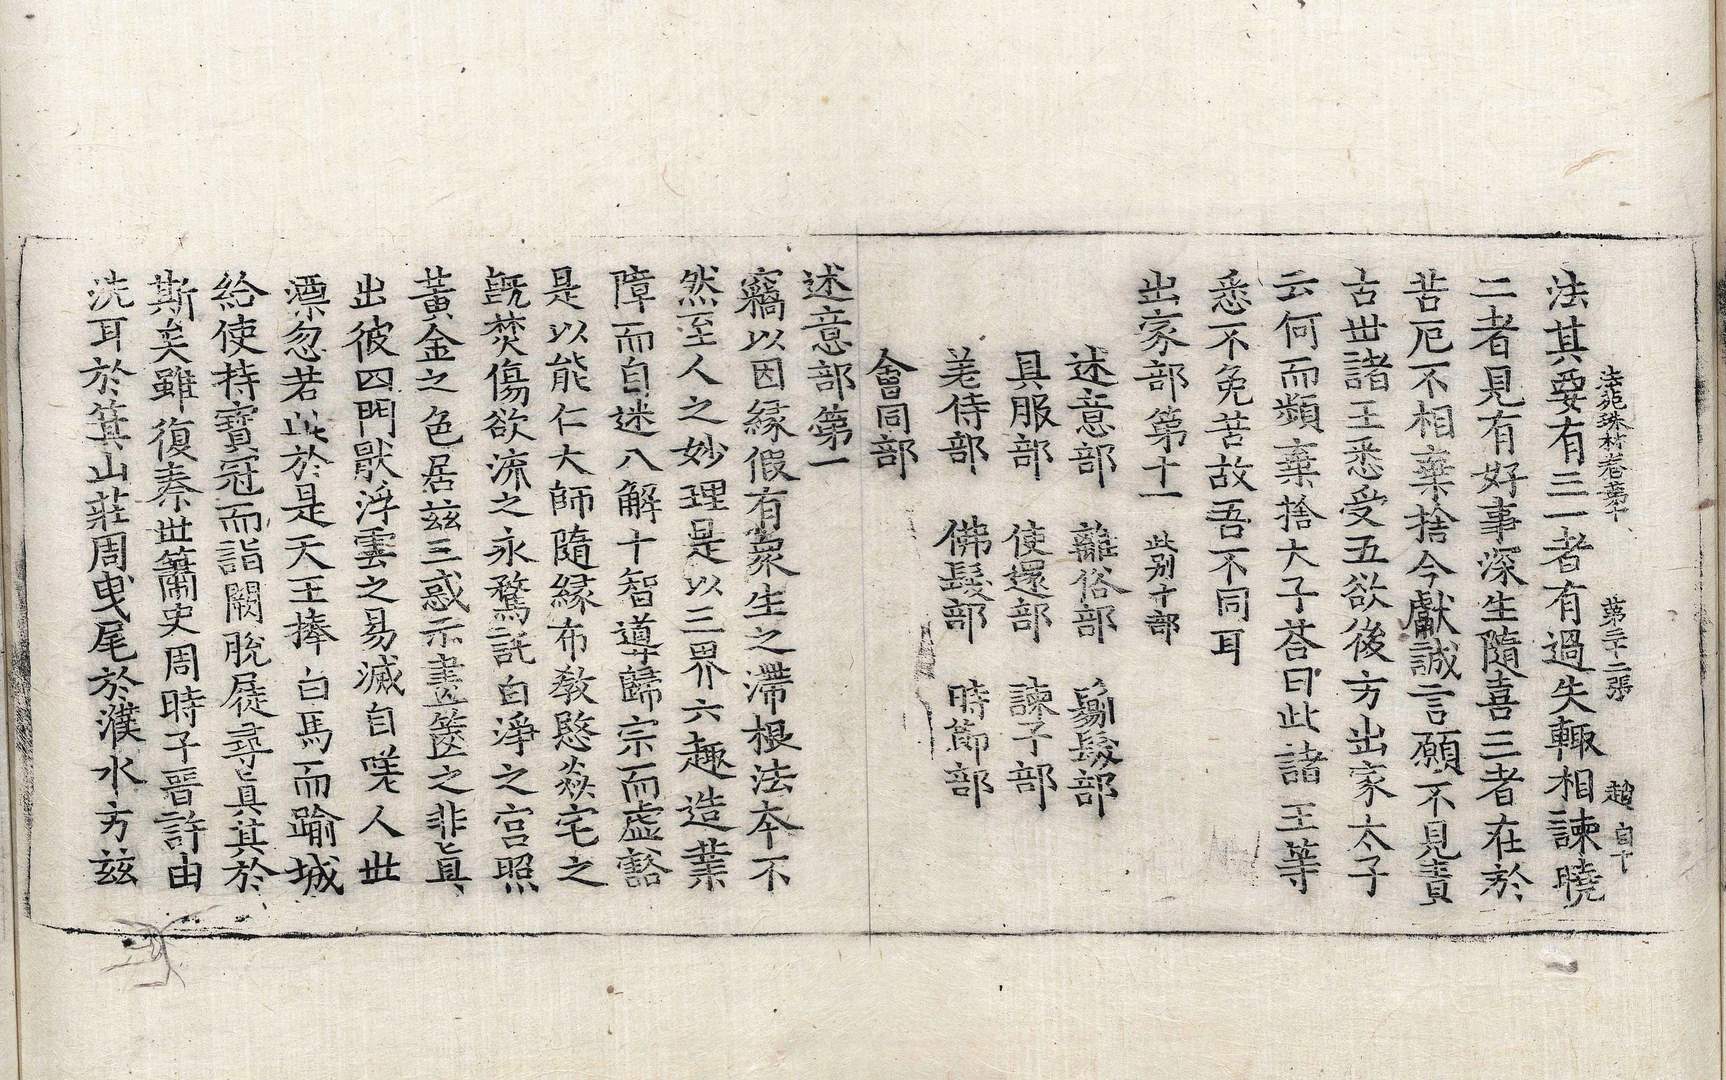 法苑珠林卷第十 第三十二張 趙 自下
法其要有三一者有過失輙相諫曉
二者見有好事深生隨喜三者在於
苦厄不相棄捨今獻誠言願不見責
古世諸王悉受五欲後方出家太子
云何而頻棄捨大子荅曰此諸王等
悉不免苦故吾不同耳
出家部第十一 此别十部
述意部 離俗部 鬀髮部
具服部 使還部 諫子部
差侍部 佛髮部 時節部
會同部
述意部第一
竊以因縁假有衆生之滯根法本不
然至人之妙理是以三界六趣造業
障而自迷八解十智導歸宗而虚豁
是以能仁大師隨縁布教愍焱宅之
既焚傷欲流之永騖託白淨之宮照
黃金之色居兹三惑示畫篋之非真
出彼四門猒浮雲之易滅自嗟人世
漂忽若此於是天王捧白馬而踰城
給使持寶冠而詣闕脫屣尋真其於
斯矣雖復秦世簫史周時子晋許由
洗耳於箕山莊周曳尾於濮水方兹